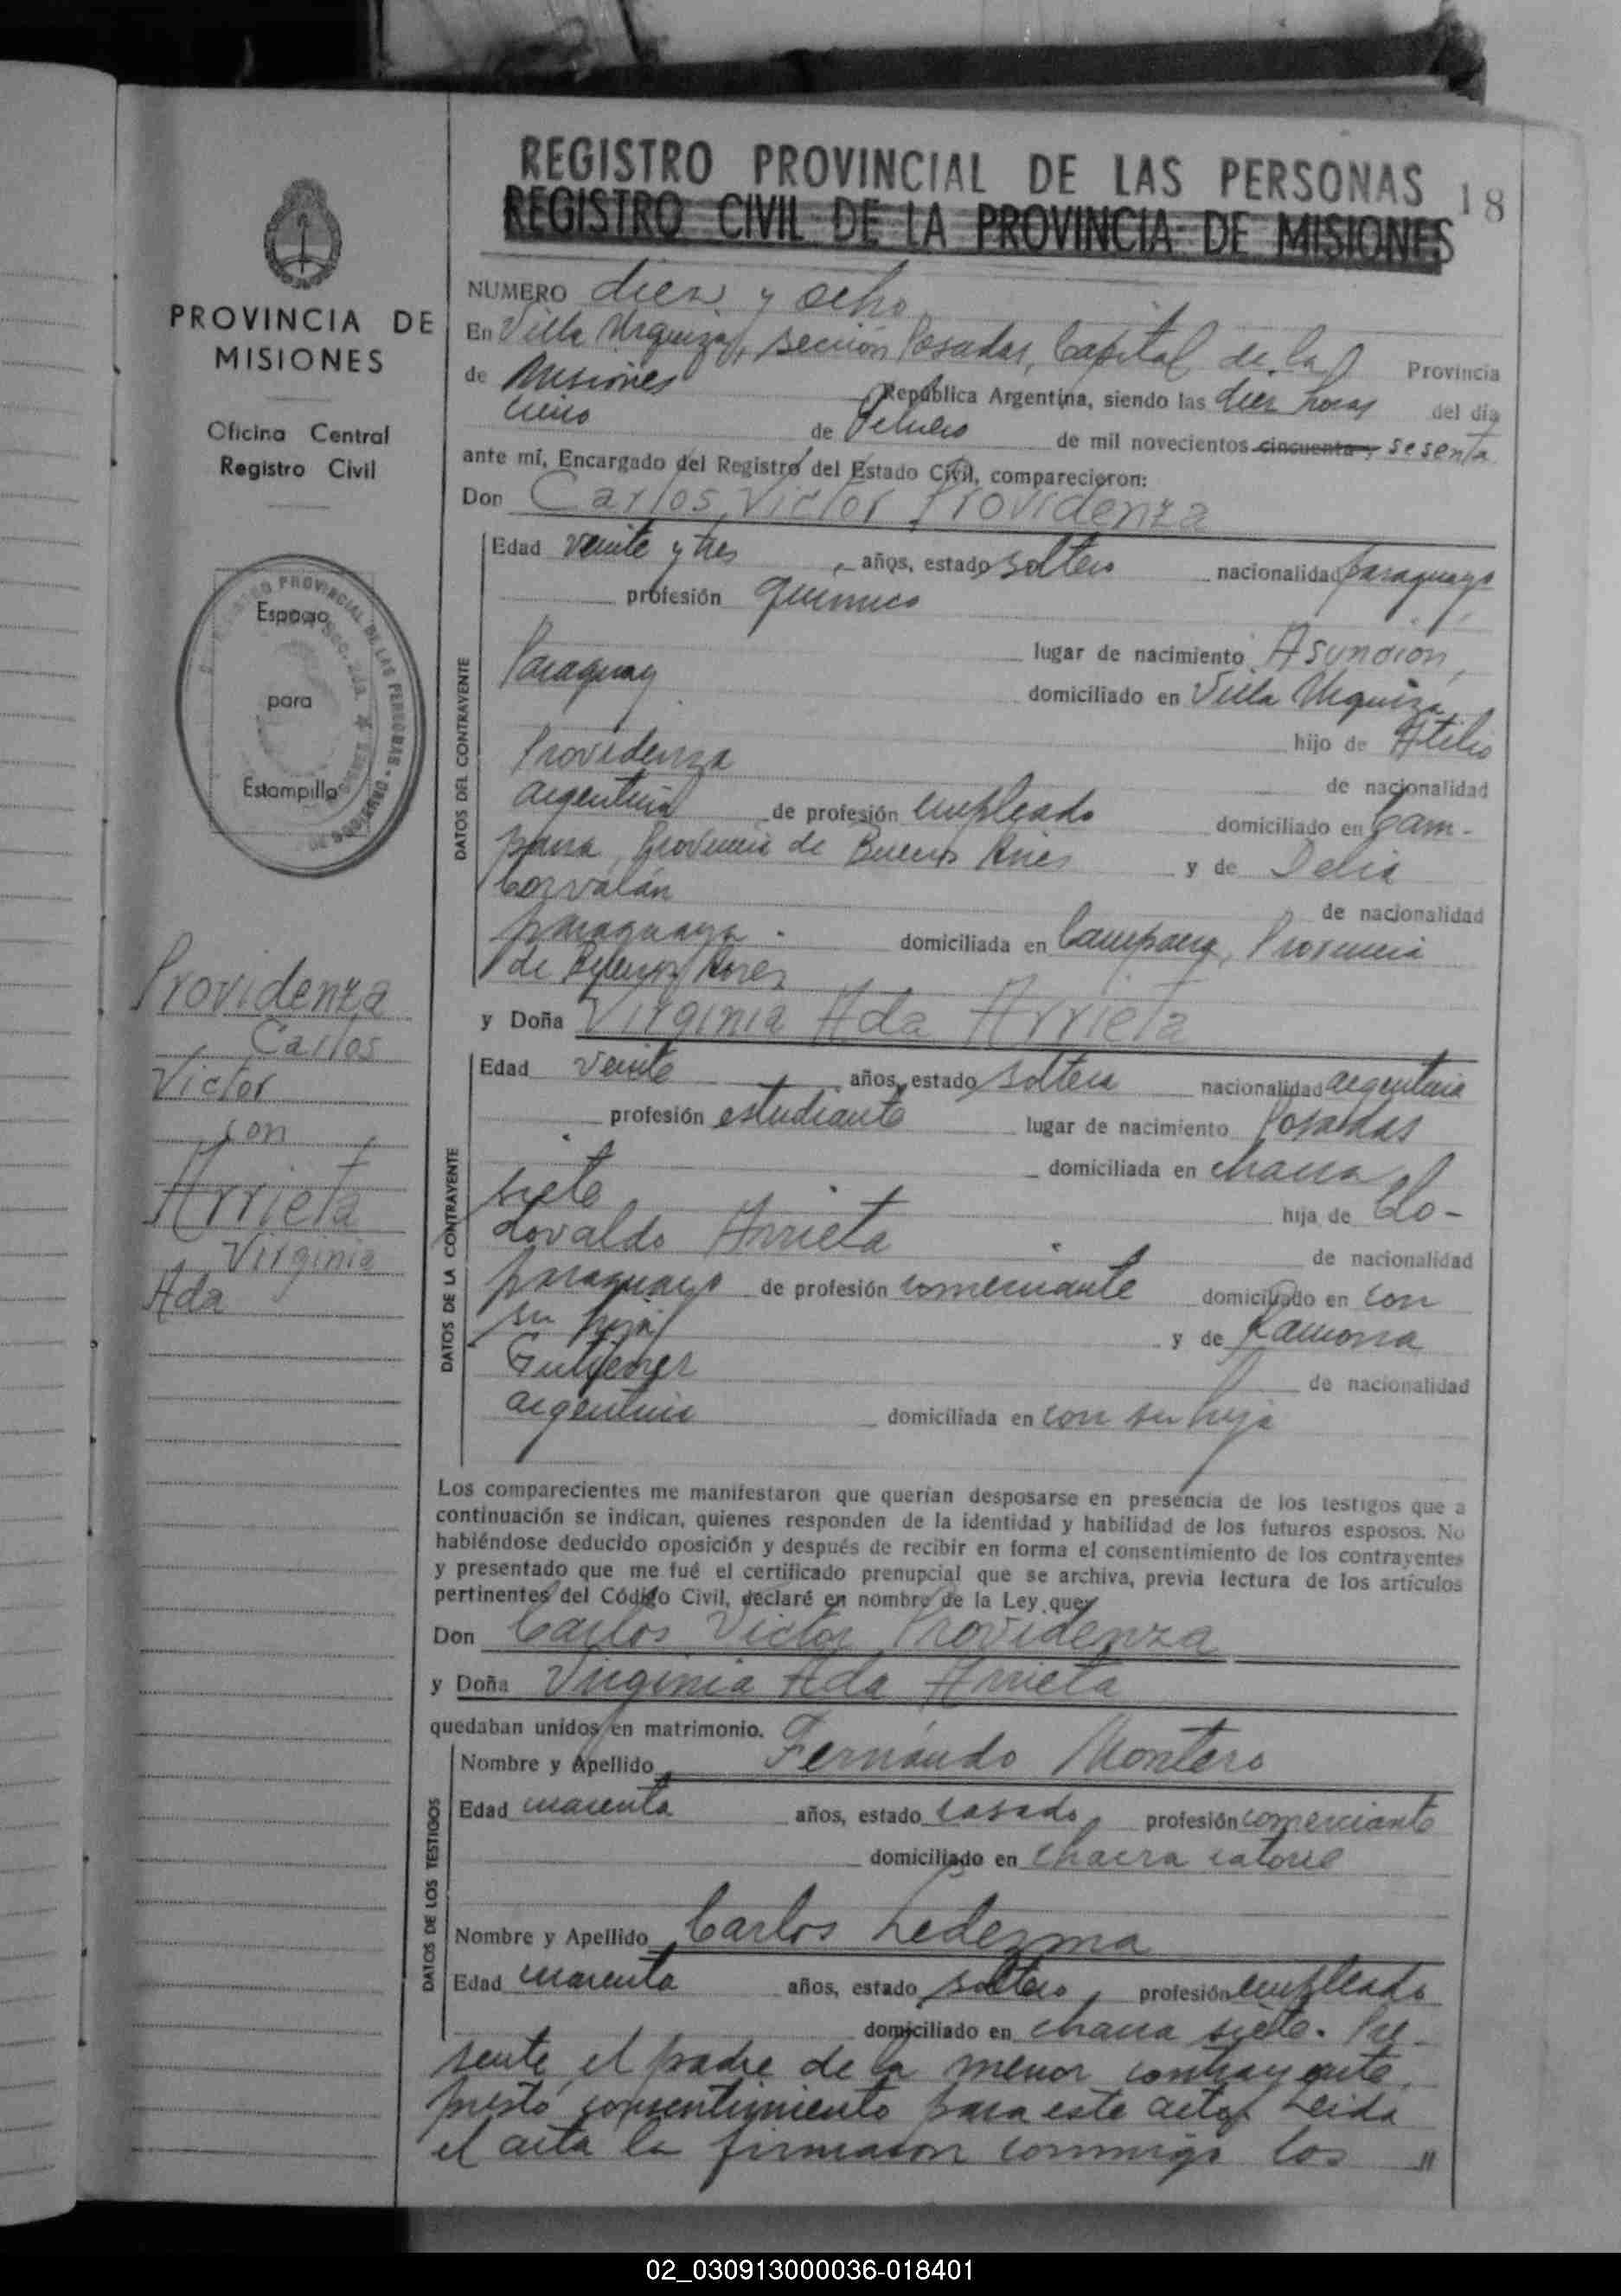 REGISTRO PROVINCIAL DE LAS PERSONAS
18
REGISTRO CIVIL DE LA PROVINCIA DE MISIONES
PROVINCIA DE
MISIONES
Oficina Central
Registro Civil
Espacio
para
Estampilla
Providenza
Carlos
Victor
con
Arrieta
Virginia
Ada
NUMERO diez y ocho
En Villa Urquiza, sección Posadas, Capital de la Provincia
de Misiones República Argentina, siendo las diez horas del día
cinco de Febrero de mil novecientos cincuenta y sesenta
ante mí, Encargado del Registro del Estado Civil, comparecieron:
Don Carlos Victor Providenza
DATOS DEL CONTRAYENTE
Edad veinte y tres años, estado soltero nacionalidad paraguayo
profesión químico
lugar de nacimiento Asunción,
Paraguay domiciliado en Villa Urquiza
hijo de Atilio
Providenza de nacionalidad
argentina de profesión empleado domiciliado en Cam-
pana, Provincia de Buenos Aires y de Delia
Corvalán de nacionalidad
paraguaya domiciliada en Campana, Provincia
de Buenos Aires
y Doña Virginia Ada Arrieta
DATOS DE LA CONTRAYENTE
Edad veinte años, estado soltera nacionalidad argentina
profesión estudiante lugar de nacimiento Posadas
domiciliada en chacra
siete hija de Clo-
dovaldo Arrieta de nacionalidad
paraguayo de profesión comerciante domiciliado en con
su hija y de Ramona
Gutierrez de nacionalidad
argentina domiciliada en con su hija
Los comparecientes me manifestaron que querían desposarse en presencia de los testigos que a
continuación se indican, quienes responden de la identidad y habilidad de los futuros esposos. No
habiéndose deducido oposición y después de recibir en forma el consentimiento de los contrayentes
y presentado que me fué el certificado prenupcial que se archiva, previa lectura de los artículos
pertinentes del Código Civil, declaré en nombre de la Ley que
Don Carlos Victor Providenza
y Doña Virginia Ada Arrieta
quedaban unidos en matrimonio.
DATOS DE LOS TESTIGOS
Nombre y Apellido Fernándo Montero
Edad cuarenta años, estado casado, profesión comerciante
domiciliado en chacra catorce
Nombre y Apellido Carlos Ledezma
Edad cuarenta años, estado soltero, profesión empleado
domiciliado en chacra siete. Pre-
sente el padre de la menor contrayente,
prestó consentimiento para este acto. Leida
el acta la firmaron conmigo los "
02_030913000036-018401